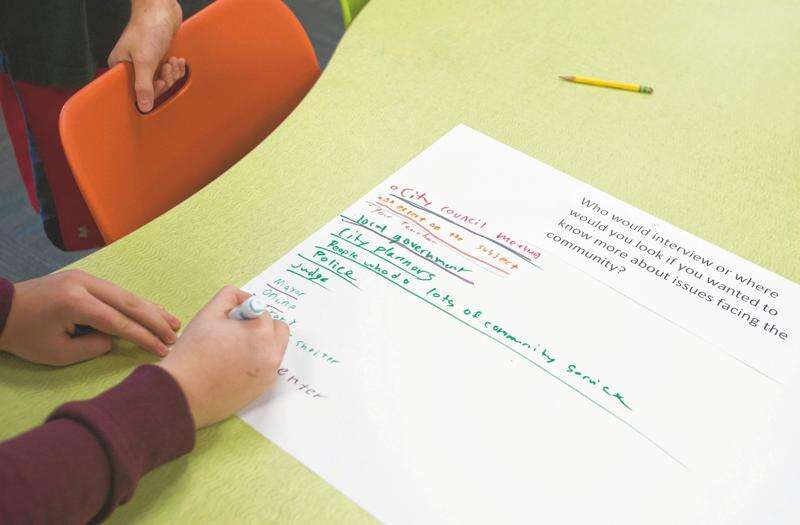 Who would interview or where
would you look if you wanted to
know more about issues facing the
community?
City council meeting
expert on the subject
Your teacher
local government
City plannors
People who do lots of community service
Police
Judge
Mayor
Online
shelter